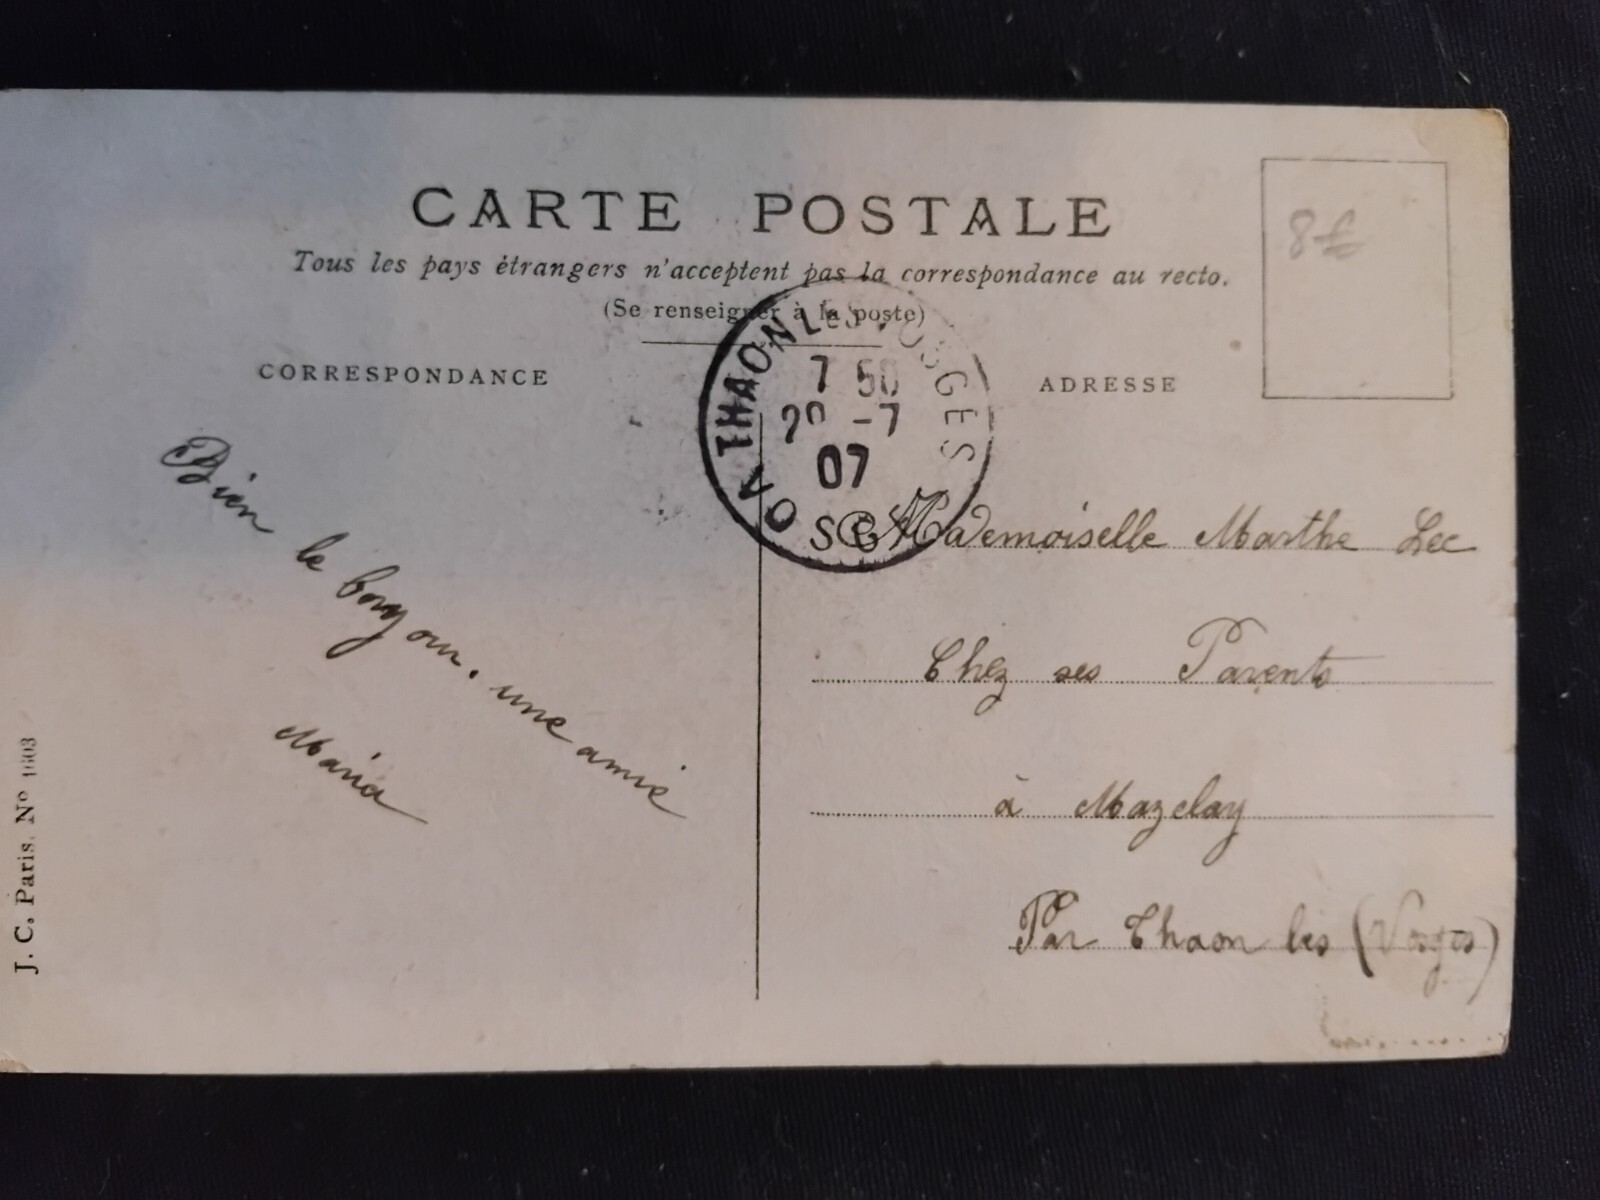 CARTE POSTALE
Tous les pays étrangers n'acceptent pas la correspondance au recto.
(Se renseigner à la poste)
CORRESPONDANCE
ADRESSE
8€
THAON LES VOSGES
7 50
20 -7
07
VOSGES
Bien le bonjour. une amie
Maria
Mademoiselle Marthe Lec
Chez ses Parents
à Mazelay
Par Thaon les (Vosges)
J. C. Paris. Nº 1603